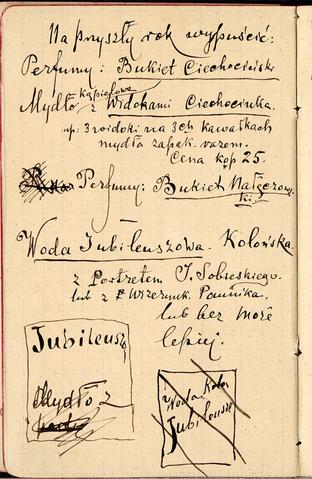 Na przyszły rok wypuścić:
Perfumy: Bukiet Ciechocińsk
kąpielowe
Mydło z Widokami Ciechocinka
np: 3 widoki na 3ch kawałkach
mydła zapak. razem.
Cena kop 25.
Perfumy: Bukiet Nałęczow-
ki
Woda Jubileuszowa Kolońska
z Portretem J. Sobieskiego.
lub z Wizerunk. Pomnika.
lub bez może
lepiej.
Jubileusz
Mydło z
Woda Kolo
Jubileusz